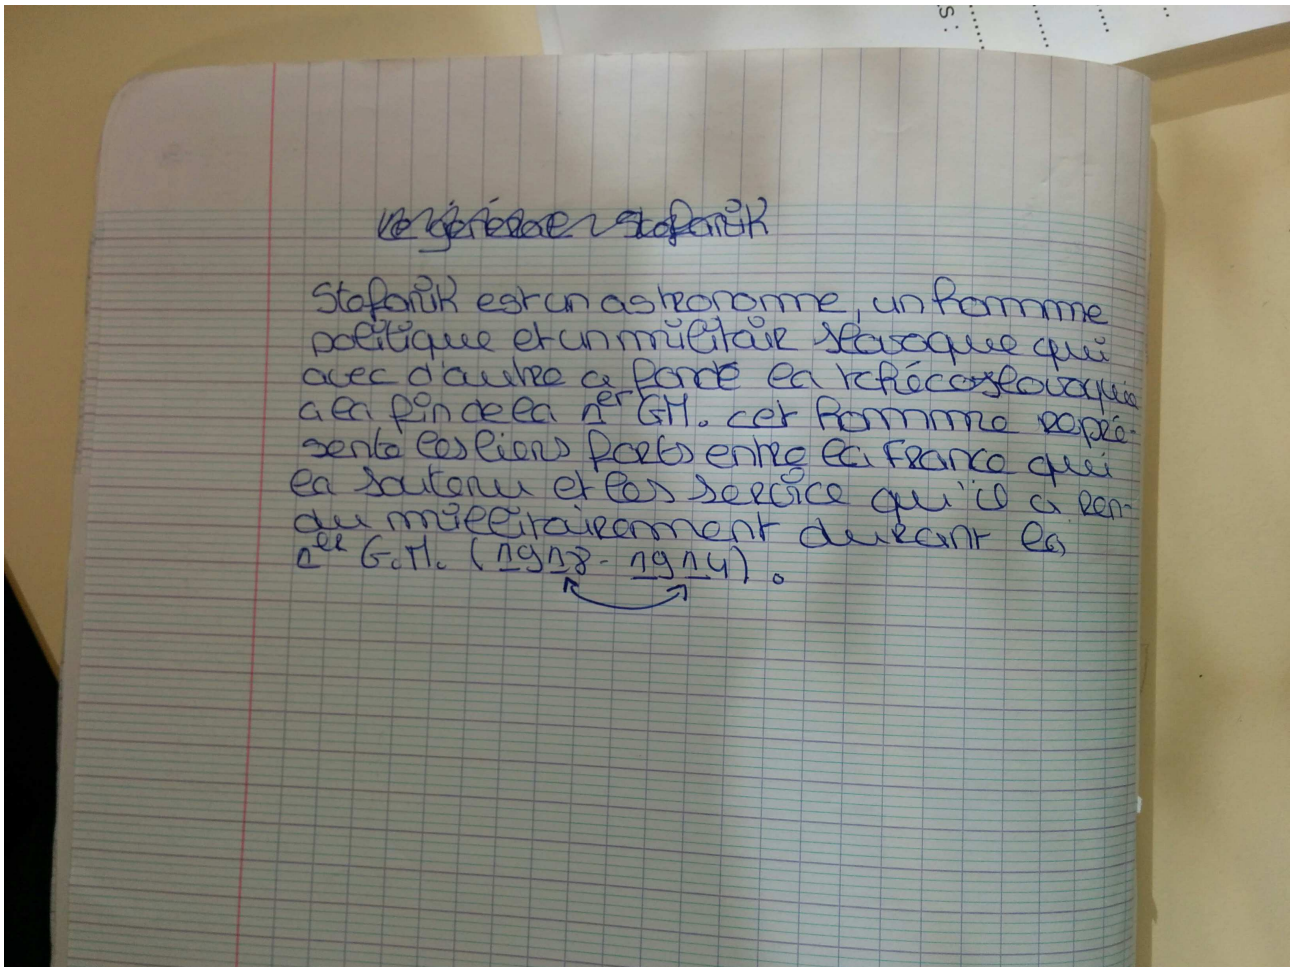 S :
Le général Stefanik
Stefanik est un astronome, un homme
politique et un militair slavoque qui
avec d'autre a fondé la tchécoslovaquie
a la fin de la 1er GM. cet homme repré-
sente les liens forts entre la France qui
la soutenu et les service qu'il a ren-
du millitairement durant la
1er G.M. (1918-1914).